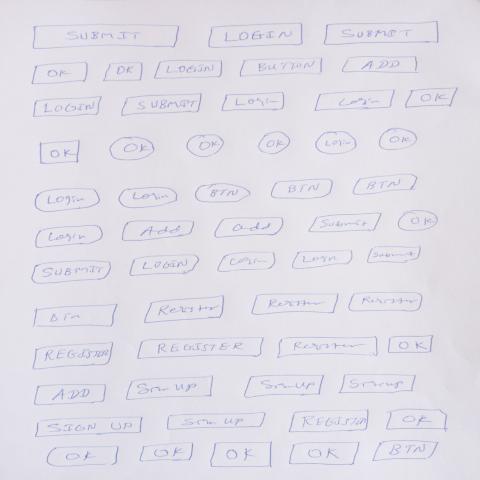 SUBMIT LOGIN SUBMIT
OK OK LOGIN BUTTON ADD
LOGIN SUBMIT Login Login OK
OK OK OK OK Login OK
Login Login BTN BTN BTN
Login Add add Submit OK
SUBMIT LOGIN Login Login Submit
Btn Register Register Register
REGISTER REGISTER Register OK
ADD Sign Up Sign Up Sign up
SIGN UP Sign Up REGISTER OK
OK OK OK OK BTN